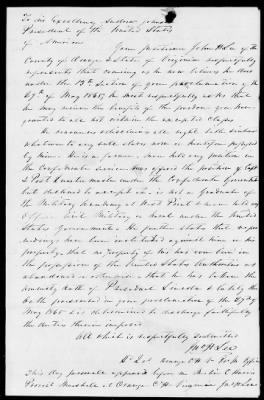 To his Excellency Andrew Johnson
President of the United States
of America
Your petitioner John H Lee of the
County of Orange & State of Virginia respectfully
represents that coming as he now believes he does
under the 13th Section of your proclamation of the
29th of May 1865, he most respectfully asks that
he may receive the benefits of the pardon you have
granted to all not within the excepted classes
He renounces & disclaims all right both
whatever to any late slaves now or heretofore possessed
by him. He is a farmer, never held any position in
the Confederate service. Was offered the position of Capt
but declined to accept it. is not a graduate of
the Military Academy at West Point & never held any
Office Civil Military or Naval under the United
States Government. He further states that no pro
ceedings have been instituted against him or his
property, that no property of his has ever been in
the possession of the United States Authorities as
abandoned or otherwise that he has taken the
amnesty oath of President Lincoln & lately the
Oath prescribed in your proclamation of the 29th of
May 1865 & is determined to discharge faithfully
the duties therein imposed
All which is respectfully submitted
Jno H Lee
Orange C H Va
This day personally appeared before me
Provost Marshall at Orange C.H. Virginia Jno H Lee